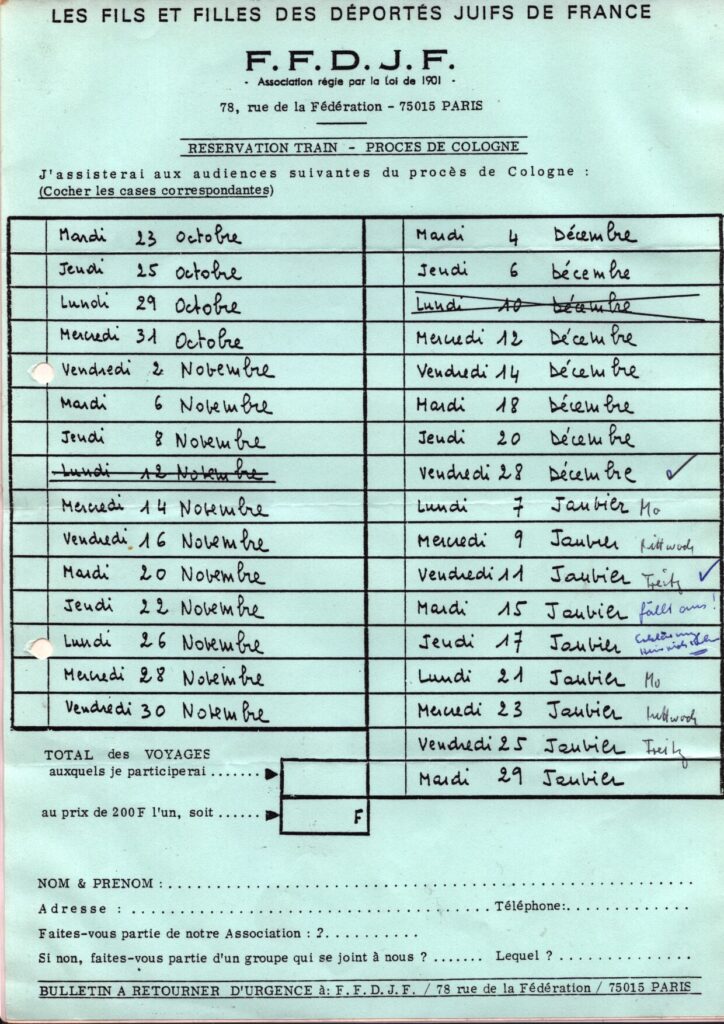 LES FILS ET FILLES DES DÉPORTÉS JUIFS DE FRANCE
F.F.D.J.F.
- Association régie par la Loi de 1901 -
78, rue de la Fédération - 75015 PARIS
RESERVATION TRAIN - PROCES DE COLOGNE
J'assisterai aux audiences suivantes du procès de Cologne :
(Cocher les cases correspondantes)
Mardi 23 Octobre
Jeudi 25 Octobre
Lundi 29 Octobre
Mercredi 31 Octobre
Vendredi 2 Novembre
Mardi 6 Novembre
Jeudi 8 Novembre
Lundi 12 Novembre
Mercredi 14 Novembre
Vendredi 16 Novembre
Mardi 20 Novembre
Jeudi 22 Novembre
Lundi 26 Novembre
Mercredi 28 Novembre
Vendredi 30 Novembre
Mardi 4 Décembre
Jeudi 6 Décembre
Lundi 10 Décembre
Mercredi 12 Décembre
Vendredi 14 Décembre
Mardi 18 Décembre
Jeudi 20 Décembre
Vendredi 28 Décembre ✓
Lundi 7 Janvier Mo
Mercredi 9 Janvier Mittwoch
Vendredi 11 Janvier Freitg ✓
Mardi 15 Janvier fällt aus!
Jeudi 17 Janvier
Lundi 21 Janvier Mo
Mercredi 23 Janvier Mittwoch
Vendredi 25 Janvier Freitg
Mardi 29 Janvier
TOTAL des VOYAGES
auxquels je participerai .......
au prix de 200F l'un, soit ...... F
NOM & PRENOM : ............................................................
Adresse : ........................................ Téléphone:..............
Faites-vous partie de notre Association : ?..........
Si non, faites-vous partie d'un groupe qui se joint à nous ? ....... Lequel ? ..............
BULLETIN A RETOURNER D'URGENCE à: F.F.D.J.F. / 78 rue de la Fédération / 75015 PARIS